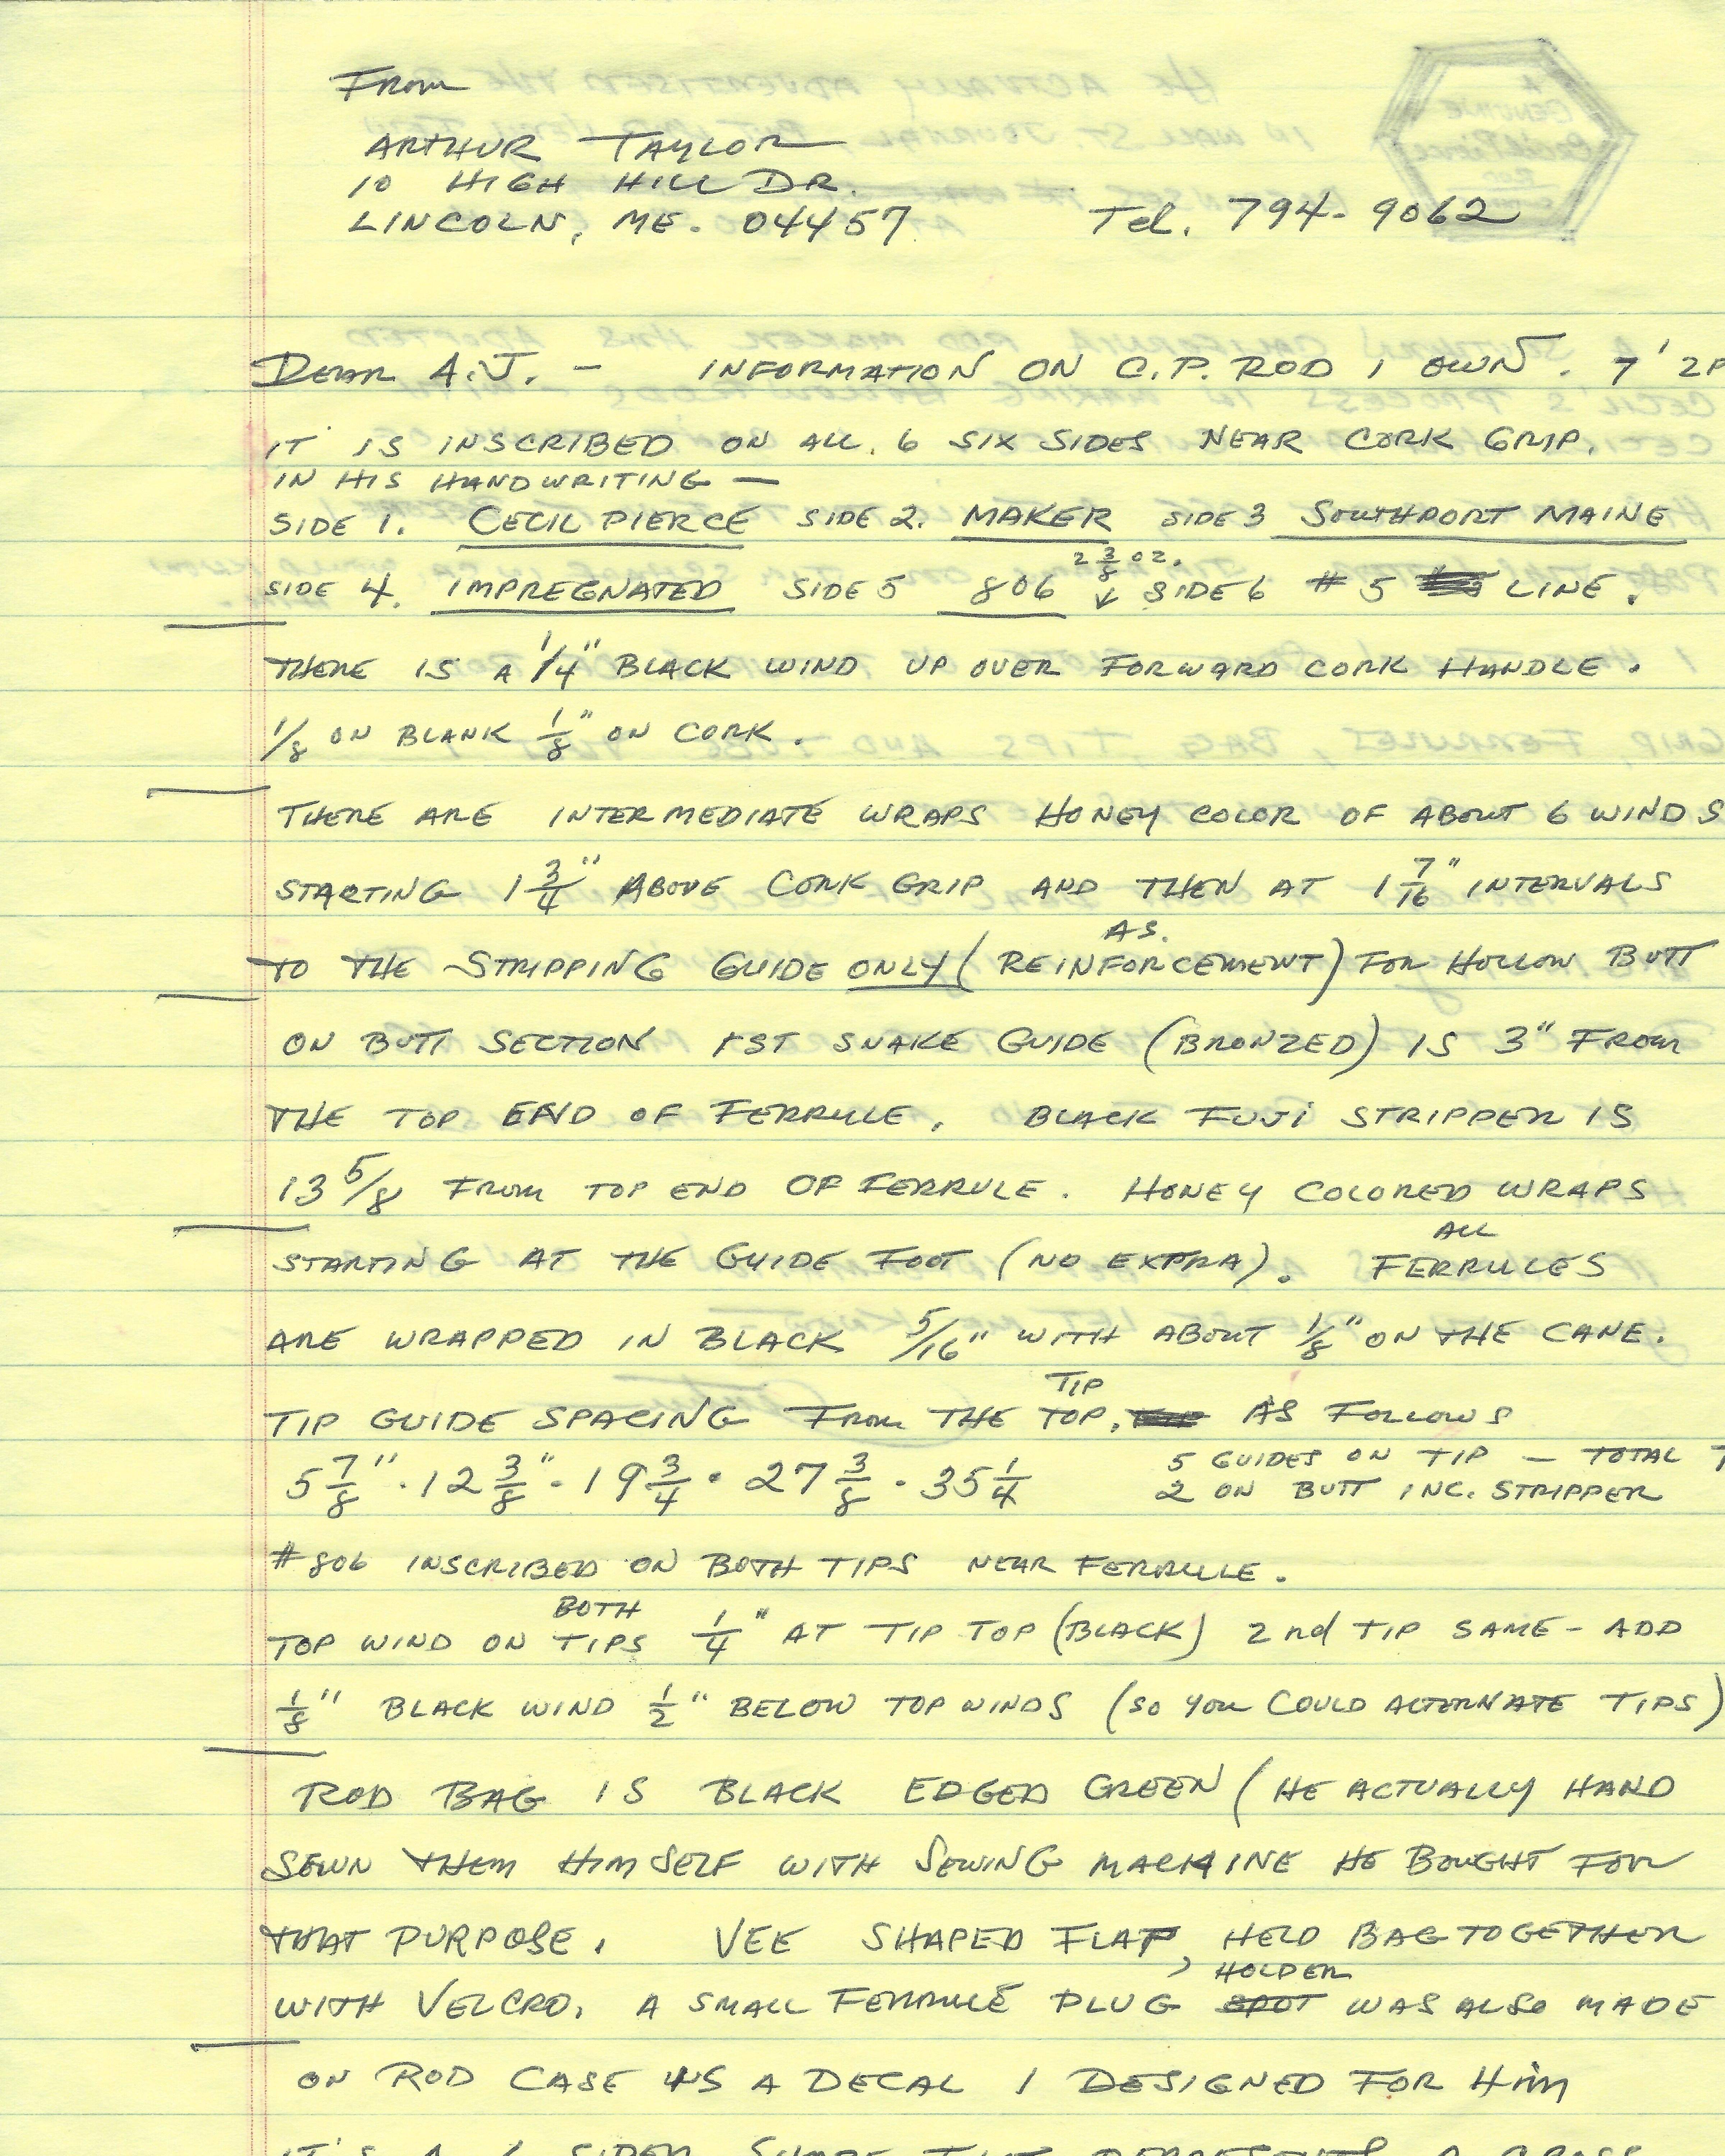 From
ARTHUR TAYLOR
10 HIGH HILL DR.
LINCOLN, ME. 04457 Tel. 794-9062
DEAR A.J. - INFORMATION ON C.P. ROD I OWN. 7' 2P
IT IS INSCRIBED ON ALL. 6 SIX SIDES NEAR CORK GRIP.
IN HIS HANDWRITING —
SIDE 1. CECIL PIERCE SIDE 2. MAKER SIDE 3 SOUTHPORT MAINE
2 3/8 OZ.
SIDE 4. IMPREGNATED SIDE 5 806 ↓ SIDE 6 # 5 LINE.
THERE IS A 1/4" BLACK WIND UP OVER FORWARD CORK HANDLE.
1/8 ON BLANK 1/8" ON CORK.
THERE ARE INTERMEDIATE WRAPS HONEY COLOR OF ABOUT 6 WINDS
STARTING 1 3/4" ABOVE CORK GRIP AND THEN AT 1 7/16" INTERVALS
AS.
TO THE STRIPPING GUIDE ONLY (REINFORCEMENT) FOR HOLLOW BUTT
ON BUTT SECTION 1ST SNAKE GUIDE (BRONZED) IS 3" FROM
THE TOP END OF FERRULE. BLACK FUJI STRIPPER IS
13 5/8 FROM TOP END OF FERRULE. HONEY COLORED WRAPS
ALL
STARTING AT THE GUIDE FOOT (NO EXTRA). FERRULES
ARE WRAPPED IN BLACK 5/16" WITH ABOUT 1/8" ON THE CANE.
TIP
TIP GUIDE SPACING FROM THE TOP, AS FOLLOWS
5 7/8" . 12 3/8" . 19 3/4 . 27 3/8 . 35 1/4
5 GUIDES ON TIP — TOTAL
2 ON BUTT INC. STRIPPER
#806 INSCRIBED ON BOTH TIPS NEAR FERRULE.
BOTH
TOP WIND ON TIPS 1/4" AT TIP TOP (BLACK) 2nd TIP SAME - ADD
1/8" BLACK WIND 1/2" BELOW TOP WINDS (SO YOU COULD ALTERNATE TIPS)
ROD BAG IS BLACK EDGED GREEN (HE ACTUALLY HAND
SEWN THEM HIMSELF WITH SEWING MACHINE HE BOUGHT FOR
THAT PURPOSE. VEE SHAPED FLAP, HELD BAG TOGETHER
HOLDER
WITH VELCRO. A SMALL FERRULE PLUG SPOT WAS ALSO MADE
ON ROD CASE IS A DECAL I DESIGNED FOR HIM
IT'S A 6 SIDED SHAPE THAT REPRESENTS A CROSS